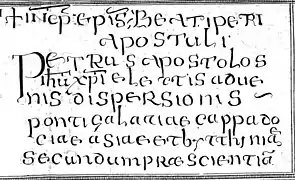 + INCP̄: EPIS̄: BEATI PETRI
APOSTULI
PETRUS APOSTOLOS
IHŪ XPĪ ELECTIS ADUE
NIS DISPERSIONIS
PONTI GALATIAE CAPPADO
CIAE ASIAE ET BYTHYNIAE
SECUNDUM PRAESCIENTIĀ